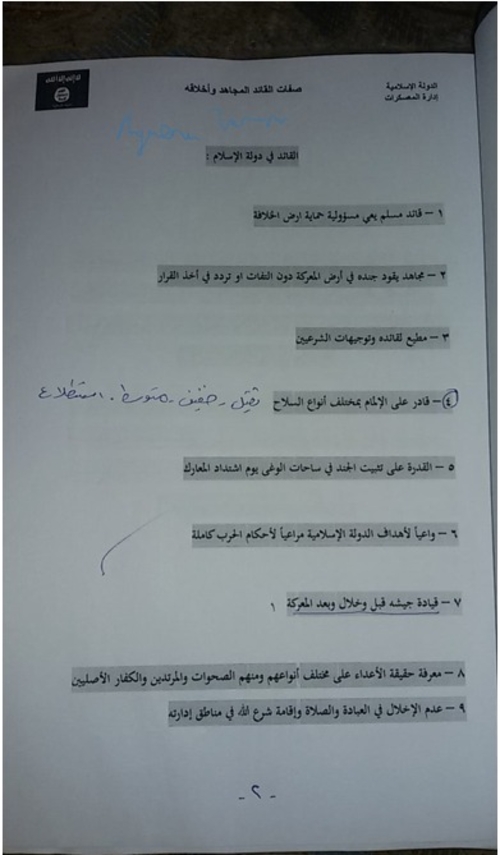 الدولة الإسلامية
إدارة المعسكرات
صفات القائد المجاهد وأخلاقه
القائد في دولة الإسلام :
١ – قائد مسلم يعي مسؤولية حماية ارض الخلافة
٢ – مجاهد يقود جنده في أرض المعركة دون التفات او تردد في أخذ القرار
٣ – مطيع لقائده وتوجيهات الشرعيين
٤ – قادر على الإلمام بمختلف أنواع السلاح ثقيل - خفيف - متوسط . استطلاع
٥ – القدرة على تثبيت الجند في ساحات الوغى يوم اشتداد المعارك
٦ – واعياً لأهداف الدولة الإسلامية مراعياً لأحكام الحرب كاملة
٧ – قيادة جيشه قبل وخلال وبعد المعركة ١
٨ – معرفة حقيقة الأعداء على مختلف أنواعهم ومنهم الصحوات والمرتدين والكفار الأصليين
٩ – عدم الإخلال في العبادة والصلاة وإقامة شرع الله في مناطق إدارته
- ٢ -